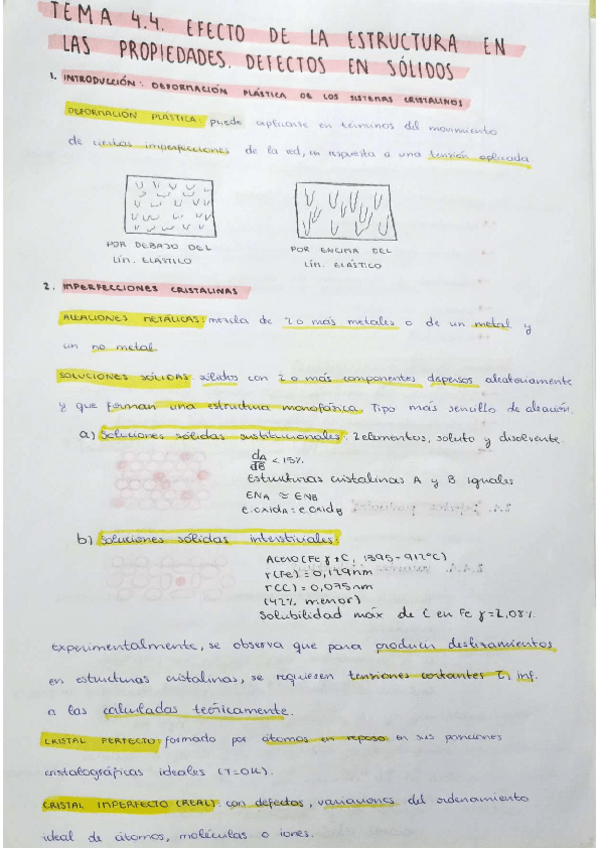 TEMA 4.4. EFECTO DE LA ESTRUCTURA EN
LAS PROPIEDADES. DEFECTOS EN SÓLIDOS
1. INTRODUCCIÓN: DEFORMACIÓN PLÁSTICA DE LOS SISTEMAS CRISTALINOS
DEFORMACIÓN PLÁSTICA: puede explicarse en términos del movimiento
de ciertas imperfecciones de la red, en respuesta a una tensión aplicada
POR DEBAJO DEL
LÍM. ELÁSTICO
POR ENCIMA DEL
LÍM. ELÁSTICO
2. IMPERFECCIONES CRISTALINAS
ALEACIONES METÁLICAS: mezcla de 2 o más metales o de un metal y
un no metal
SOLUCIONES SÓLIDAS: sólidos con 2 o más componentes dispersos aleatoriamente
y que forman una estructura monofásica. Tipo más sencillo de aleación.
a) Soluciones sólidas sustitucionales: 2 elementos, soluto y disolvente
dA/dB < 15%
Estructuras cristalinas A y B iguales
ENA ≈ ENB
e.oxidA = e.oxidB
b) Soluciones sólidas intersticiales:
Acero (Fe γ + C, 1395-912°C)
r(Fe) = 0,129nm
r(C) = 0,075nm
(42% menor)
Solubilidad máx de C en Fe γ = 2,08%
experimentalmente, se observa que para producir deslizamientos
en estructuras cristalinas, se requieren tensiones cortantes τ, inf.
a las calculadas teóricamente.
CRISTAL PERFECTO: formado por átomos en reposo en sus posiciones
cristalográficas ideales (T=0K).
CRISTAL IMPERFECTO (REAL): con defectos, variaciones del ordenamiento
ideal de átomos, moléculas o iones.